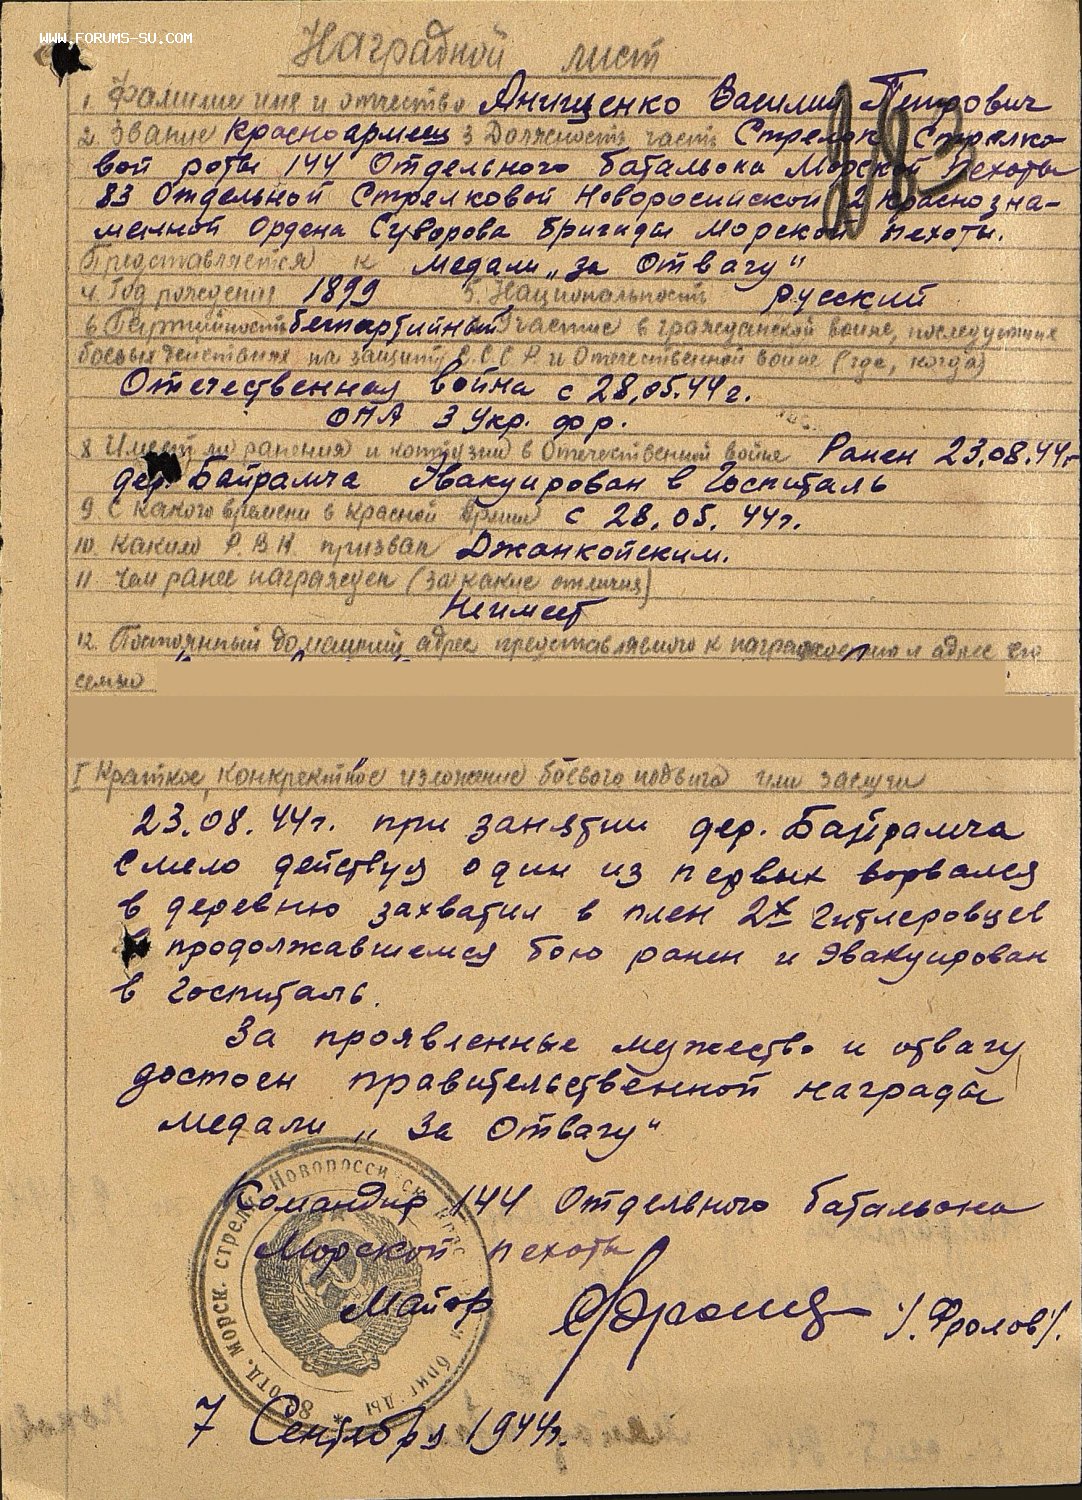 WWW.FORUMS-SU.COM
Наградной лист
1. Фамилие имя и отчество Анищенко Василий Петрович
2. Звание Красноармеец 3 Должность, часть Стрелок Стрелко-
вой роты 144 Отдельного батальона Морской Пехоты
83 Отдельной Стрелковой Новоросийской 2 Краснозна-
менной Ордена Суворова бригады Морской пехоты.
Представляется к медали „За Отвагу"
4. Год рождения 1899 5. Национальность русский
6. Партийность беспартийный 7. Участие в гражданской войне, последующих
боевых действиях по защите С.С.С.Р. и Отечественной войне (где, когда)
Отечественная война с 28,05.44г.
ОПА 3 Укр. фр.
8 Имеет ли ранения и контузии в Отечественной войне Ранен 23.08.44г
дер. Байрамча Эвакуирован в Госпиталь
9. С какого времени в Красной Армии с 28.05.44г.
10. Каким Р.В.К. призван Джанкойским.
11 Чем ранее награжден (за какие отличия)
Неимеет
12. Постоянный домашний адрес представляемого к награждению и адрес его
семьи
I Краткое, конкретное изложение боевого подвига или заслуги
23.08.44г. при занятии дер. Байрамча
Смело действуя один из первых ворвался
в деревню захватил в плен 2х Гитлеровцев
в продолжавшемся бою ранен и Эвакуирован
в Госпиталь.
За проявленные мужество и отвагу
достоен правительственной награды
медали „За Отвагу"
Командир 144 Отдельного батальона
Морской пехоты
Майор /.Фролов/.
7 Сентября 1944г.
83 отд. морск. стрелк. Новороссийск бригады